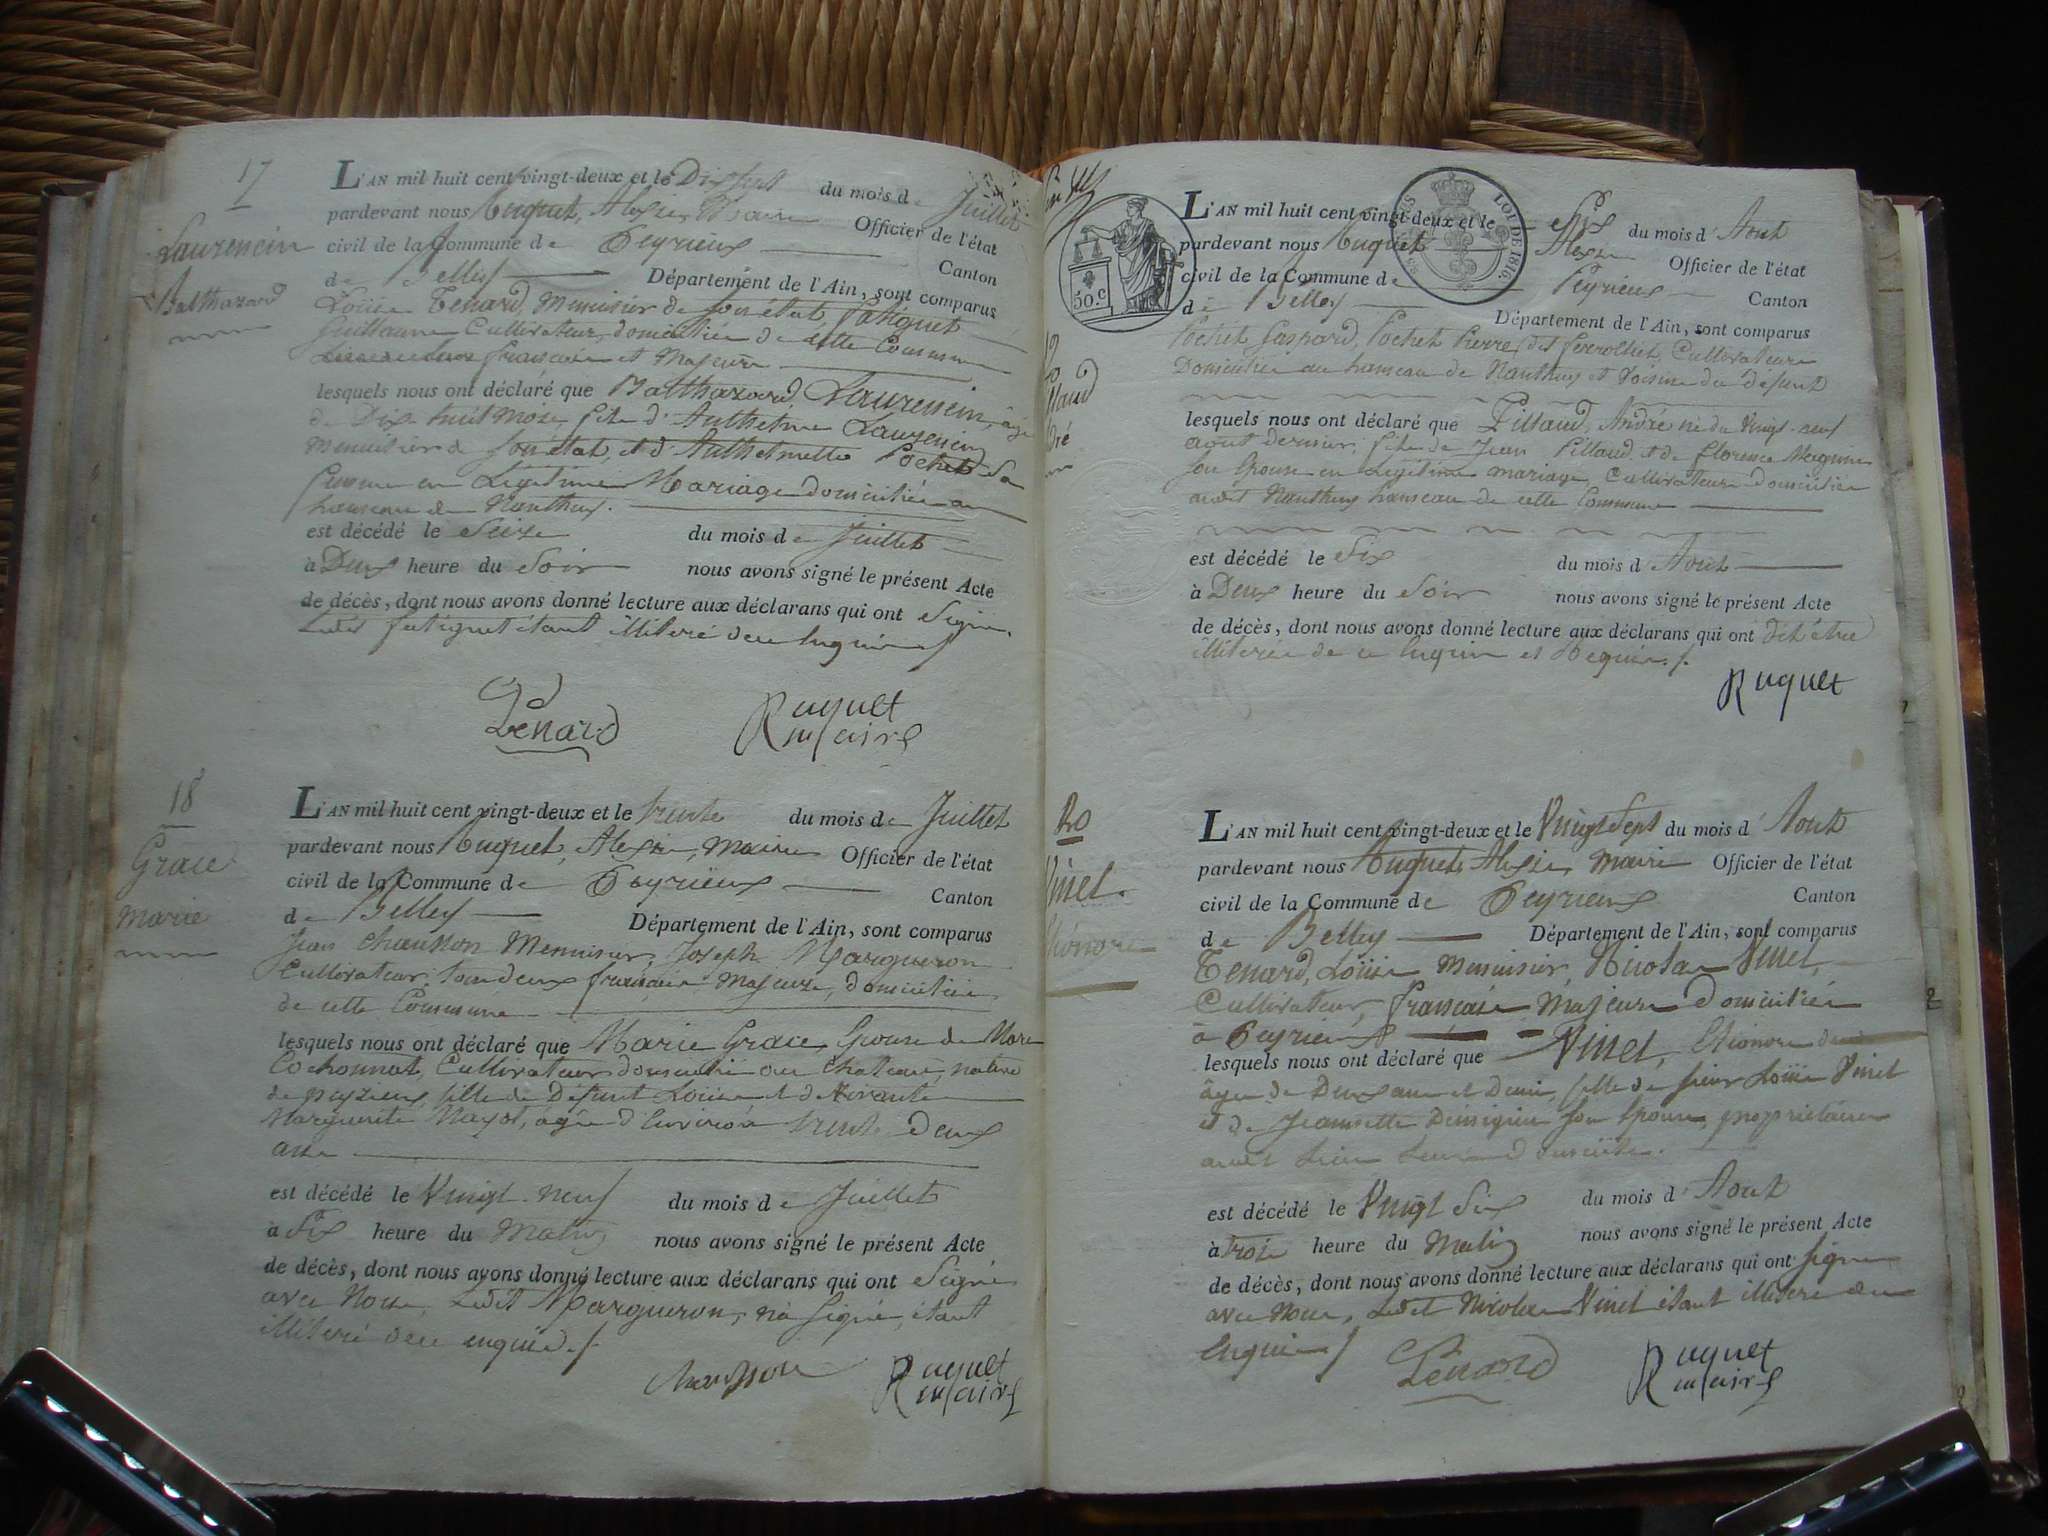 17
Laurencin
Balthazard
L'AN mil huit cent vingt-deux et le Dix sept du mois de Juillet
pardevant nous Huguet, Alexis Maire Officier de l'état
civil de la Commune de Peyrieux Canton
de Belley Département de l'Ain, sont comparus
Louis Tenard, Menuisier de son état,
Guillaume Cultivateur, domiciliés de cette Commune
français et Majeurs
lesquels nous ont déclaré que Balthazard Laurencin, âgé
de Dix huit mois, fils d'Anthelme Laurencin
Menuisier de son état, et d'Anthelmette Pochet Sa
femme en Légitime Mariage domiciliés au
hameau de Nanthuy.
est décédé le Seize du mois de Juillet
à Deux heure du Soir nous avons signé le présent Acte
de décès, dont nous avons donné lecture aux déclarans qui ont Signé
étant illiteré de ce
Tenard Huguet
maire
18
Grace
Marie
L'AN mil huit cent vingt-deux et le trente du mois de Juillet
pardevant nous Huguet, Alexis, maire Officier de l'état
civil de la Commune de Peyrieux Canton
de Belley Département de l'Ain, sont comparus
Jean Chausson Menuisier, Joseph Margueron
Cultivateur, tous deux français Majeurs, domiciliés
de cette Commune
lesquels nous ont déclaré que Marie Grace, Epouse de Marc
Cochonnat, Cultivateur domicilié au Chateau, native
de peyzieu, fille de Défunt Louis et de vivante
Marguerite Mayot, agée d'Environ trente Deux
ans
est décédé le Vingt-neuf du mois de Juillet
à Six heure du Matin nous avons signé le présent Acte
de décès, dont nous avons donné lecture aux déclarans qui ont Signé
avec Nous, Ledit Margueron, n'a Signé, étant
illiteré de ce enquis
Chausson Huguet
maire
50.c
LOI DE 1816.
L'AN mil huit cent vingt-deux et le Six du mois d'Aout
pardevant nous Huguet Alexis Officier de l'état
civil de la Commune de Peyrieux Canton
de Belley Département de l'Ain, sont comparus
Pochet Gaspard, Pochet Pierre, dit Cultivateurs
Domiciliés au hameau de Nanthuy et Voisins du défunt
lesquels nous ont déclaré que Pillaud, André né du Vingt-neuf
aout dernier, fils de Jean Pillaud et de Florence
son Epouse en Légitime mariage, Cultivateurs domiciliés
audit Nanthuy hameau de cette Commune
est décédé le Six du mois d'Aout
à Deux heure du Soir nous avons signé le présent Acte
de décès, dont nous avons donné lecture aux déclarans qui ont dit être
illiterés de ce enquis et Requis
Huguet
20
Vinet.
L'AN mil huit cent vingt-deux et le Vingt Sept du mois d'Aout
pardevant nous Huguet, Alexis maire Officier de l'état
civil de la Commune de Peyrieux Canton
de Belley Département de l'Ain, sont comparus
Tenard, Louis Menuisier, Nicolas Vinet,
Cultivateur, français Majeurs domiciliés
à Peyrieux
lesquels nous ont déclaré que Vinet,
âgée de Deux ans et Demi, fille de sieur Louis Vinet
et de Jeannette son Epouse, propriétaires
audit Lieu
est décédé le Vingt Six du mois d'Aout
à trois heure du Matin nous avons signé le présent Acte
de décès, dont nous avons donné lecture aux déclarans qui ont signé
avec Nous, Ledit Nicolas Vinet étant illiteré de ce
Enquis
Tenard Huguet
maire